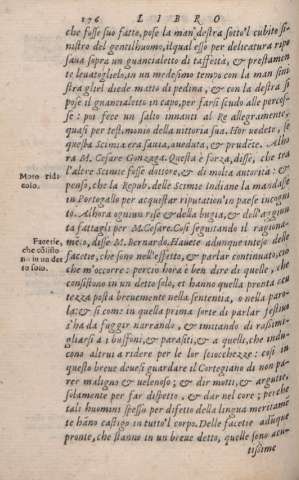 196 LIBRO
che fosse suo fatto, pose la man destra sotto'l cubito si-
nistro del gentilhuomo, ilqual esso per delicatura ripo
saua sopra un guancialetto di taffettà, & prestamen
te leuatoglielo, in un medesimo tempo con la man sini
stra gliel diede matto di pedina, & con la destra si
pose il guancialetto in capo, per farsi scudo alle percos-
se: poi fece un salto innanti al Re allegramente,
quasi per testimonio della vittoria sua. Hor uedete, se
questa Scimia era sauia, aueduta, & prudẽte. Alho
ra M. Cesare Gonzaga. Questa è forza, disse, che tra
l'altre Scimie fosse dottore, & di molta autorità: &
Moto ridi
colo.
penso, che la Repub. delle Scimie Indiane la mandasse
in Portogallo per acquistar riputation' in paese incogni
to. Alhora ogniun rise & della bugia, & dell'aggiun
ta fattagli per M. Cesare. Cosi seguitando il ragiona-
Facetie,
che cõsisto
no in un det
to solo.
mẽto, disse M. Bernardo. Hauete adunque inteso delle
facetie, che sono nell'effetto, & parlar continuato, ciò
che m'occorre: percio hora è ben dire di quelle, che
consistono in un detto solo, et hanno quella pronta acu
tezza posta breuemente nella sententia, o nella paro-
la: & si come in quella prima sorte di parlar festiuo
s'ha da fuggir narrando, & imitando di rassimi-
gliarsi a i buffoni, & parasiti, & a quelli, che indu-
cono altrui a ridere per le lor sciocchezze: cosi in
questo breue deuesi guardare il Cortegiano di non pa-
rer maligno & uelenoso; & dir motti, & argutie,
solamente per far dispetto, & dar nel core; perche
tali huomini spesso per difetto della lingua meritamẽ
te hãno castigo in tutto'l corpo. Delle facetie adũque
pronte, che stanno in un breue detto, quelle sono acu-
tissime